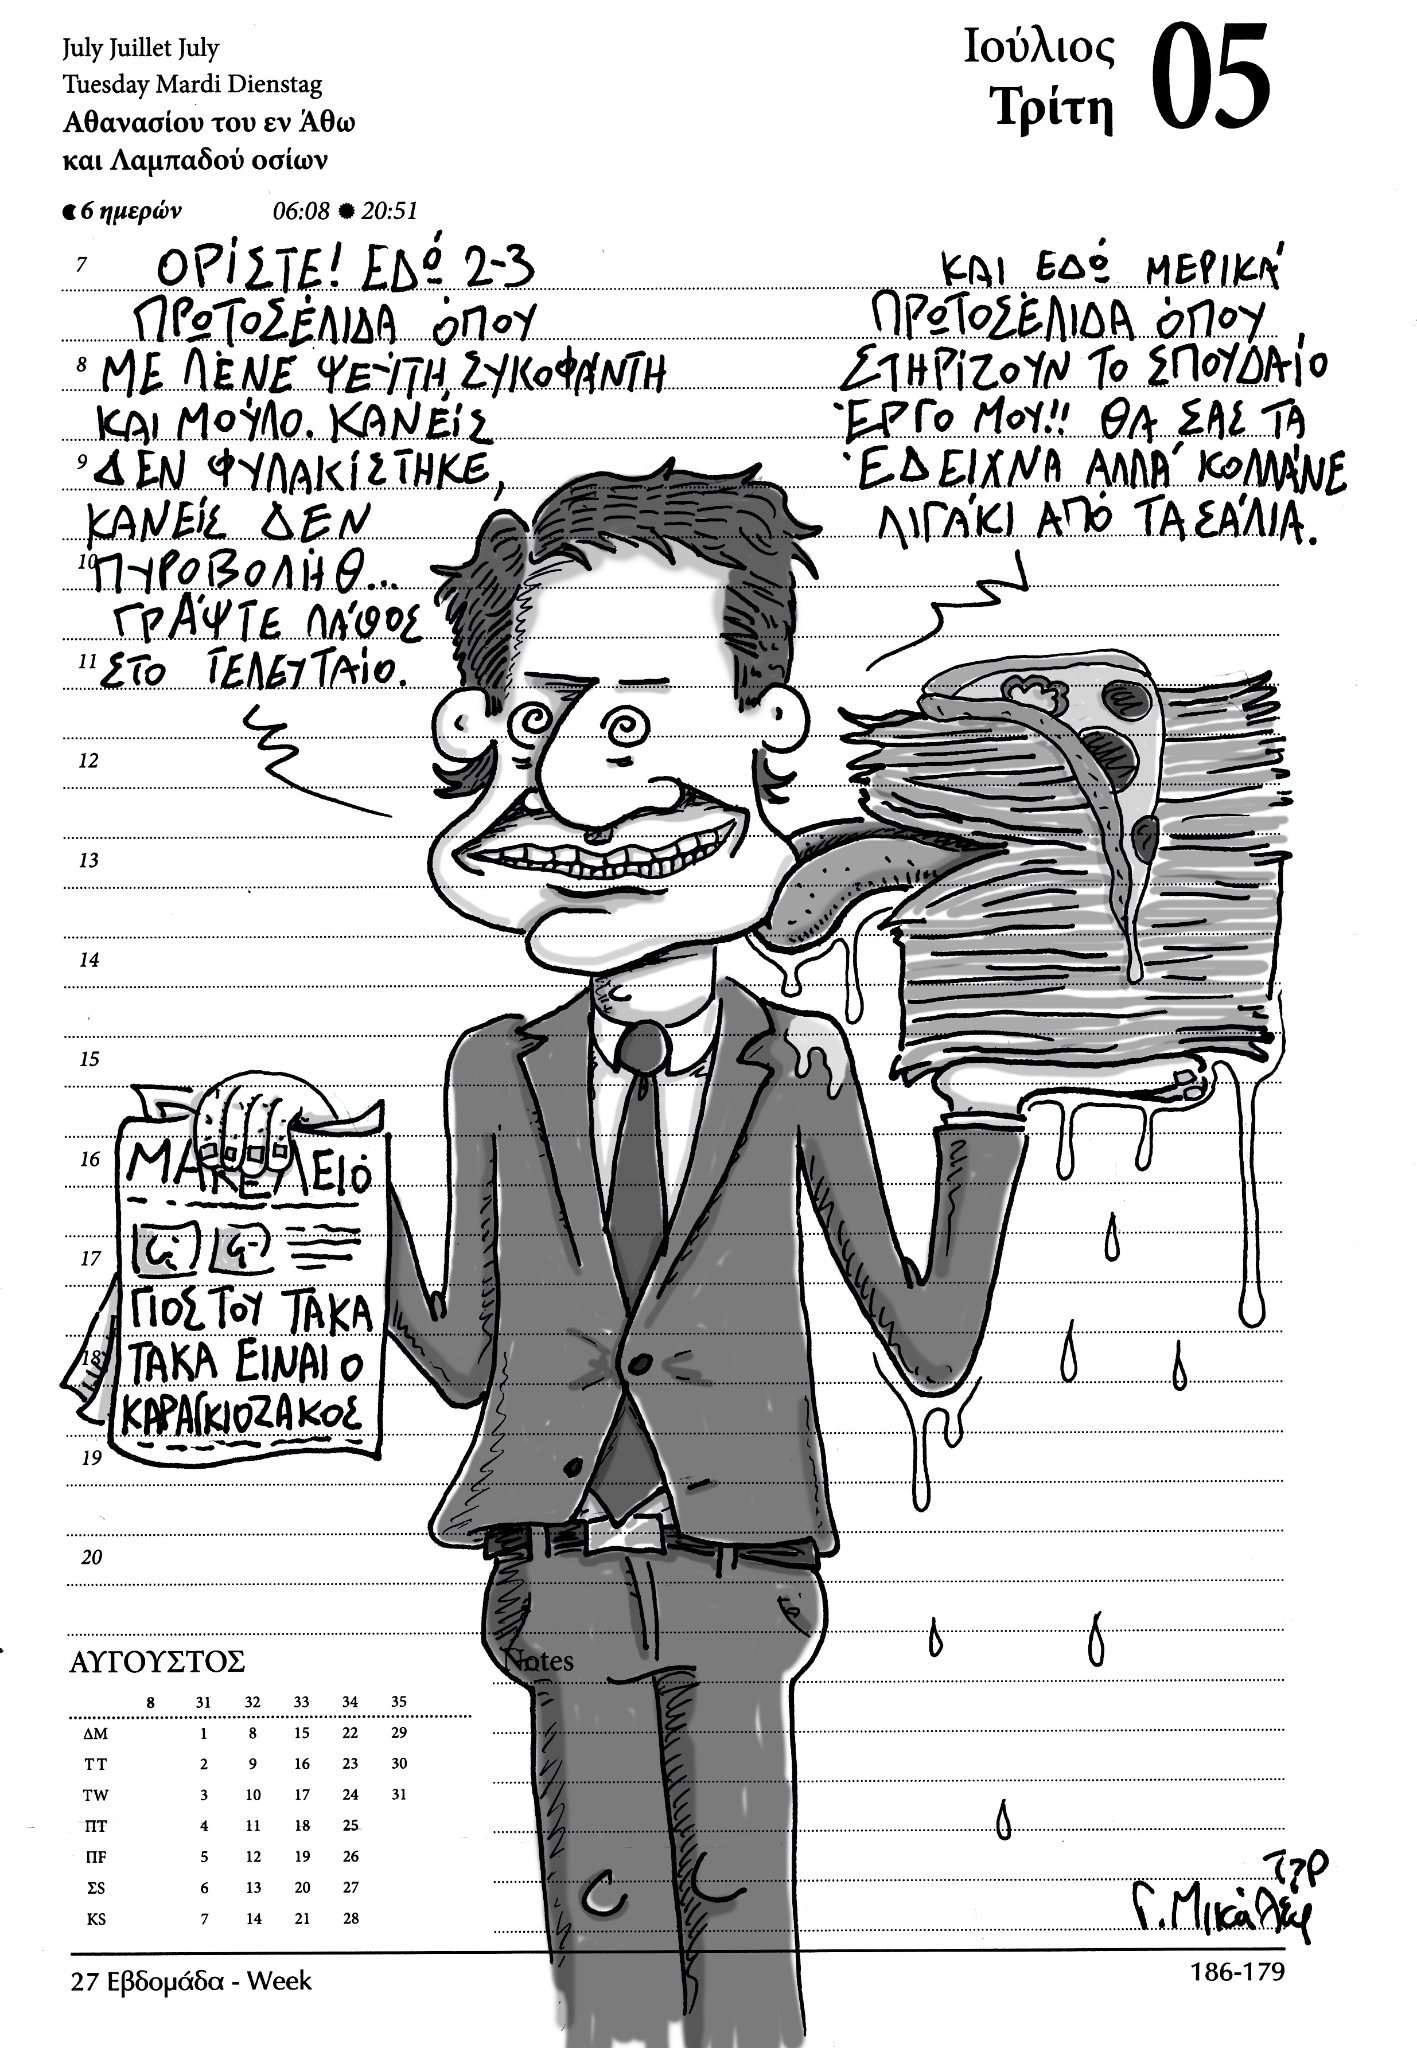 July Juillet July
Tuesday Mardi Dienstag
Αθανασίου του εν Άθω
και Λαμπαδού οσίων
6 ημερών 06:08 20:51
Ιούλιος
Τρίτη
05
7
8
9
10
11
12
13
14
15
16
17
18
19
20
ΟΡΊΣΤΕ! ΕΔΏ 2-3
ΠΡΩΤΟΣΈΛΙΔΑ ΌΠΟΥ
ΜΕ ΛΈΝΕ ΨΕΎΤΗ, ΣΥΚΟΦΆΝΤΗ
ΚΑΙ ΜΟΎΛΟ. ΚΑΝΕΊΣ
ΔΕΝ ΦΥΛΑΚΊΣΤΗΚΕ,
ΚΑΝΕΊΣ ΔΕΝ
ΠΥΡΟΒΟΛΉΘ...
ΓΡΆΨΤΕ ΛΆΘΟΣ
ΣΤΟ ΤΕΛΕΥΤΑΊΟ.
ΚΑΙ ΕΔΏ ΜΕΡΙΚΆ
ΠΡΩΤΟΣΈΛΙΔΑ ΌΠΟΥ
ΣΤΗΡΊΖΟΥΝ ΤΟ ΣΠΟΥΔΑΊΟ
ΈΡΓΟ ΜΟΥ!! ΘΑ ΣΑΣ ΤΑ
ΈΔΕΙΧΝΑ ΑΛΛΆ ΚΟΛΛΆΝΕ
ΛΙΓΆΚΙ ΑΠΌ ΤΑ ΣΆΛΙΑ.
ΜΑΚΕΛΕΙΟ
ΓΙΟΣ ΤΟΥ ΤΑΚΑ
ΤΑΚΑ ΕΙΝΑΙ Ο
ΚΑΡΑΓΚΙΟΖΑΚΟΣ
ΑΥΓΟΥΣΤΟΣ
8 31 32 33 34 35
ΔΜ 1 8 15 22 29
ΤΤ 2 9 16 23 30
ΤW 3 10 17 24 31
ΠΤ 4 11 18 25
ΠF 5 12 19 26
ΣS 6 13 20 27
KS 7 14 21 28
Notes
ΤζΡ
Γ. Μικάλεφ
27 Εβδομάδα - Week
186-179